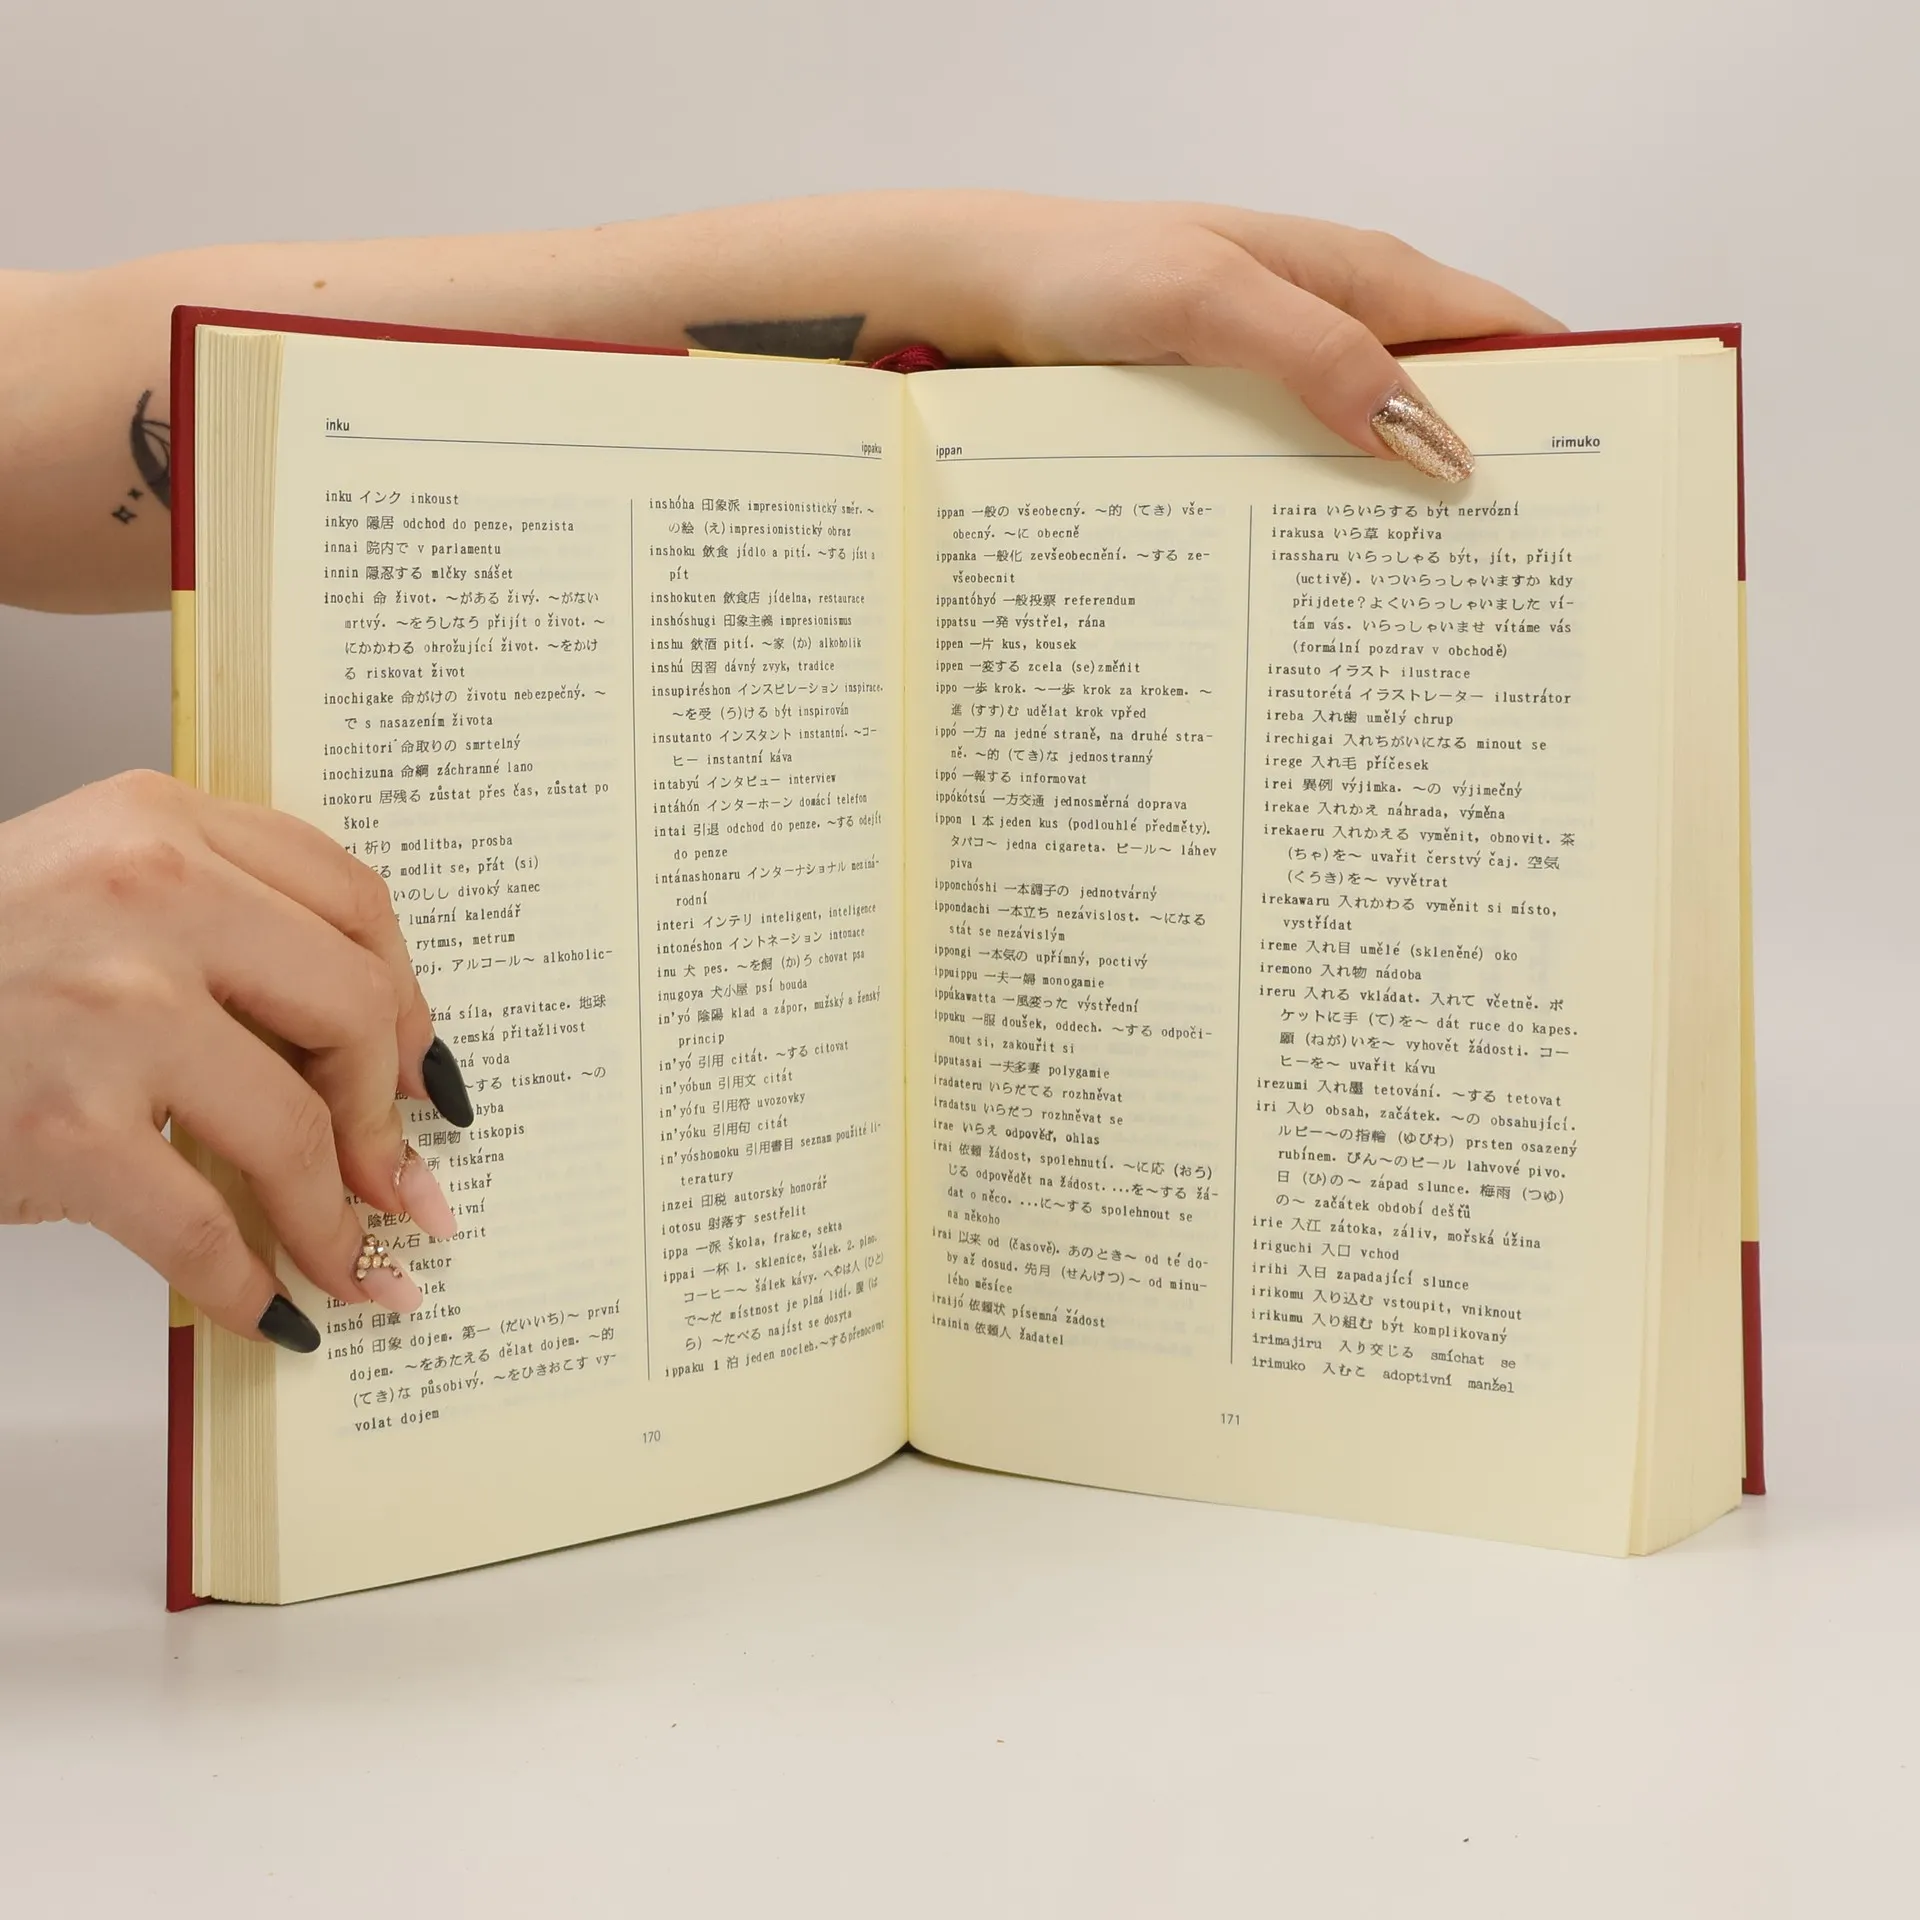 inku
ippaku
inku インク inkoust
inkyo 隠居 odchod do penze, penzista
innai 院内で v parlamentu
innin 隠忍する mlčky snášet
inochi 命 život. ～がある živý. ～がない
mrtvý. ～をうしなう přijít o život. ～
にかかわる ohrožující život. ～をかけ
る riskovat život
inochigake 命がけの životu nebezpečný. ～
で s nasazením života
inochitori 命取りの smrtelný
inochizuna 命綱 záchranné lano
inokoru 居残る zůstat přes čas, zůstat po
škole
ri 祈り modlitba, prosba
る modlit se, přát (si)
いのしし divoký kanec
lunární kalendář
rytmus, metrum
poj. アルコール～ alkoholic-
žná síla, gravitace. 地球
zemská přitažlivost
tná voda
～する tisknout. ～の
tisk hyba
印刷物 tiskopis
所 tiskárna
tiskař
陰性の tivní
いん石 meteorit
faktor
olek
inshó 印章 razítko
inshó 印象 dojem. 第一 (だいいち)～ první
dojem. ～をあたえる dělat dojem. ～的
(てき)な působivý. ～をひきおこす vy-
volat dojem
inshóha 印象派 impresionistický směr. ～
の絵 (え) impresionistický obraz
inshoku 飲食 jídlo a pití. ～する jíst a
pít
inshokuten 飲食店 jídelna, restaurace
inshóshugi 印象主義 impresionismus
inshu 飲酒 pití. ～家 (か) alkoholik
inshú 因習 dávný zvyk, tradice
insupiréshon インスピレーション inspirace.
～を受 (う)ける být inspirován
insutanto インスタント instantní. ～コー
ヒー instantní káva
intabyú インタビュー interview
intáhón インターホーン domácí telefon
intai 引退 odchod do penze. ～する odejít
do penze
intánashonaru インターナショナル meziná-
rodní
interi インテリ inteligent, inteligence
intonéshon イントネーション intonace
inu 犬 pes. ～を飼 (か)う chovat psa
inugoya 犬小屋 psí bouda
in'yó 陰陽 klad a zápor, mužský a ženský
princip
in'yó 引用 citát. ～する citovat
in'yóbun 引用文 citát
in'yófu 引用符 uvozovky
in'yóku 引用句 citát
in'yóshomoku 引用書目 seznam použité li-
teratury
inzei 印税 autorský honorář
iotosu 射落す sestřelit
ippa 一派 škola, frakce, sekta
ippai 一杯 1. sklenice, šálek. 2. plno.
コーヒー～ šálek kávy. へやは人 (ひと)
で～だ místnost je plná lidí. 腹 (は
ら) ～たべる najíst se dosyta
ippaku 1 泊 jeden nocleh. ～する přenocovat
170
ippan
irimuko
ippan 一般の všeobecný. ～的 (てき) vše-
obecný. ～に obecně
ippanka 一般化 zevšeobecnění. ～する ze-
všeobecnit
ippantóhyó 一般投票 referendum
ippatsu 一発 výstřel, rána
ippen 一片 kus, kousek
ippen 一変する zcela (se)změnit
ippo 一歩 krok. ～一歩 krok za krokem. ～
進 (すす)む udělat krok vpřed
ippó 一方 na jedné straně, na druhé stra-
ně. ～的 (てき)な jednostranný
ippó 一報する informovat
ippókótsú 一方交通 jednosměrná doprava
ippon 1 本 jeden kus (podlouhlé předměty).
タバコ～ jedna cigareta. ビール～ láhev
piva
ipponchóshi 一本調子の jednotvárný
ippondachi 一本立ち nezávislost. ～になる
stát se nezávislým
ippongi 一本気の upřímný, poctivý
ippuippu 一夫一婦 monogamie
ippúkawatta 一風変った výstřední
ippuku 一服 doušek, oddech. ～する odpoči-
nout si, zakouřit si
ipputasai 一夫多妻 polygamie
iradateru いらだてる rozhněvat
iradatsu いらだつ rozhněvat se
irae いらえ odpověď, ohlas
irai 依頼 žádost, spolehnutí. ～に応 (おう)
じる odpovědět na žádost. ...を～する žá-
dat o něco. ...に～する spolehnout se
na někoho
irai 以来 od (časově). あのとき～ od té do-
by až dosud. 先月 (せんげつ)～ od minu-
lého měsíce
iraijó 依頼状 písemná žádost
irainin 依頼人 žadatel
iraira いらいらする být nervózní
irakusa いら草 kopřiva
irassharu いらっしゃる být, jít, přijít
(uctivě). いついらっしゃいますか kdy
přijdete? よくいらっしゃいました ví-
tám vás. いらっしゃいませ vítáme vás
(formální pozdrav v obchodě)
irasuto イラスト ilustrace
irasutorétá イラストレーター ilustrátor
ireba 入れ歯 umělý chrup
irechigai 入れちがいになる minout se
irege 入れ毛 příčesek
irei 異例 výjimka. ～の výjimečný
irekae 入れかえ náhrada, výměna
irekaeru 入れかえる vyměnit, obnovit. 茶
(ちゃ)を～ uvařit čerstvý čaj. 空気
(くうき)を～ vyvětrat
irekawaru 入れかわる vyměnit si místo,
vystřídat
ireme 入れ目 umělé (skleněné) oko
iremono 入れ物 nádoba
ireru 入れる vkládat. 入れて včetně. ポ
ケットに手 (て)を～ dát ruce do kapes.
願 (ねが)いを～ vyhovět žádosti. コー
ヒーを～ uvařit kávu
irezumi 入れ墨 tetování. ～する tetovat
iri 入り obsah, začátek. ～の obsahující.
ルビー～の指輪 (ゆびわ) prsten osazený
rubínem. びん～のビール lahvové pivo.
日 (ひ)の～ západ slunce. 梅雨 (つゆ)
の～ začátek období dešťů
irie 入江 zátoka, záliv, mořská úžina
iriguchi 入口 vchod
irihi 入日 zapadající slunce
irikomu 入り込む vstoupit, vniknout
irikumu 入り組む být komplikovaný
irimajiru 入り交じる smíchat se
irimuko 入むこ adoptivní manžel
171